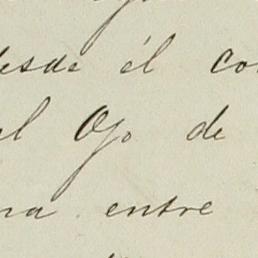 desde él co
el Ojo de
na entre